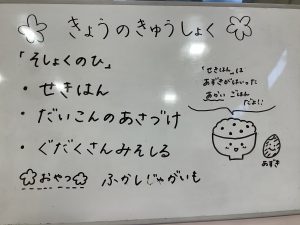 きょうのきゅうしょく
「そしょくのひ」
・せきはん
・だいこんのあさづけ
・ぐだくさんみそしる
おやつ ふかしじゃがいも
「せきはん」は
あずきがはいった
あかい ごはん
だよ!!
あずき